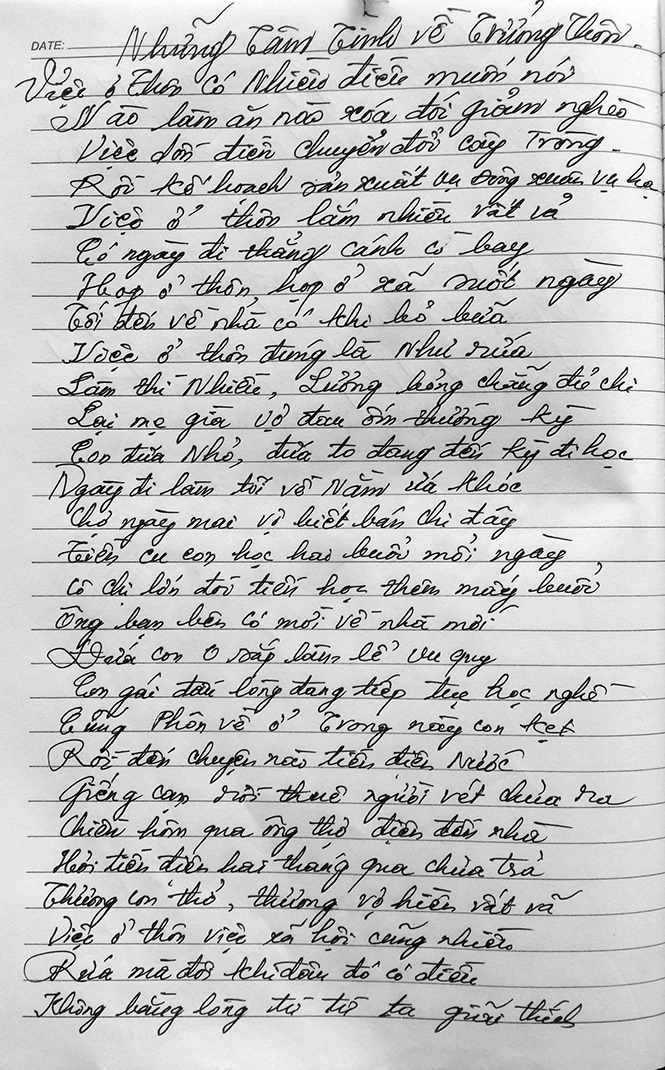 DATE:
Những Tâm Tình về Trưởng Thôn.
Việc ở thôn có nhiều điều muốn nói
Nào làm ăn nào xóa đói giảm nghèo
Việc dồn điền chuyển đổi cây trồng.
Rồi kế hoạch sản xuất vụ đông xuân vụ hạ
Việc ở thôn lắm nhiều vất vả
Có ngày đi thẳng cánh cò bay
Họp ở thôn, họp ở xã suốt ngày
Tối đến về nhà có khi bỏ bữa
Việc ở thôn đúng là như rứa
Làm thì nhiều, Lương bổng chẳng đủ chi
Lại mẹ già vợ đau ốm thường kỳ
Con đứa nhỏ, đứa to đang đến kỳ đi học
Ngày đi làm tối về nằm ứa khóc
Chợ ngày mai vợ biết bán chi đây
Tiền cu con học hai buổi mỗi ngày
Cô chị lớn đòi tiền học thêm mấy buổi
Ông bạn bên có mời về nhà mới
Đứa con O sắp làm lễ vu quy
Con gái đầu lòng đang tiếp tục học nghề
Cũng phôn về ở trong này con kẹt
Rồi đến chuyện nào tiền điện nước
Giếng cạn rồi thuê người vét chưa ra
Chiều hôm qua ông thợ điện đến nhà
Hỏi tiền điện hai tháng qua chưa trả
Thương con thơ, thương vợ hiền vất vả
Việc ở thôn việc xã hội cũng nhiều
Rứa mà đôi khi đâu đó có điều
Không bằng lòng từ từ ta giải thích